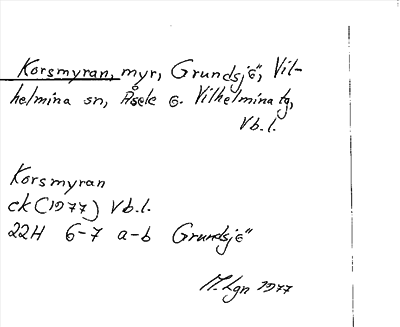 Korsmyran, myr, Grundsjö, Vil-
helmina sn, Åsele o. Vilhelmina tg,
Vb.l.
Korsmyran
ck (1977) Vb.l.
22H 6-7 a-b Grundsjö
M.Lgn 1977